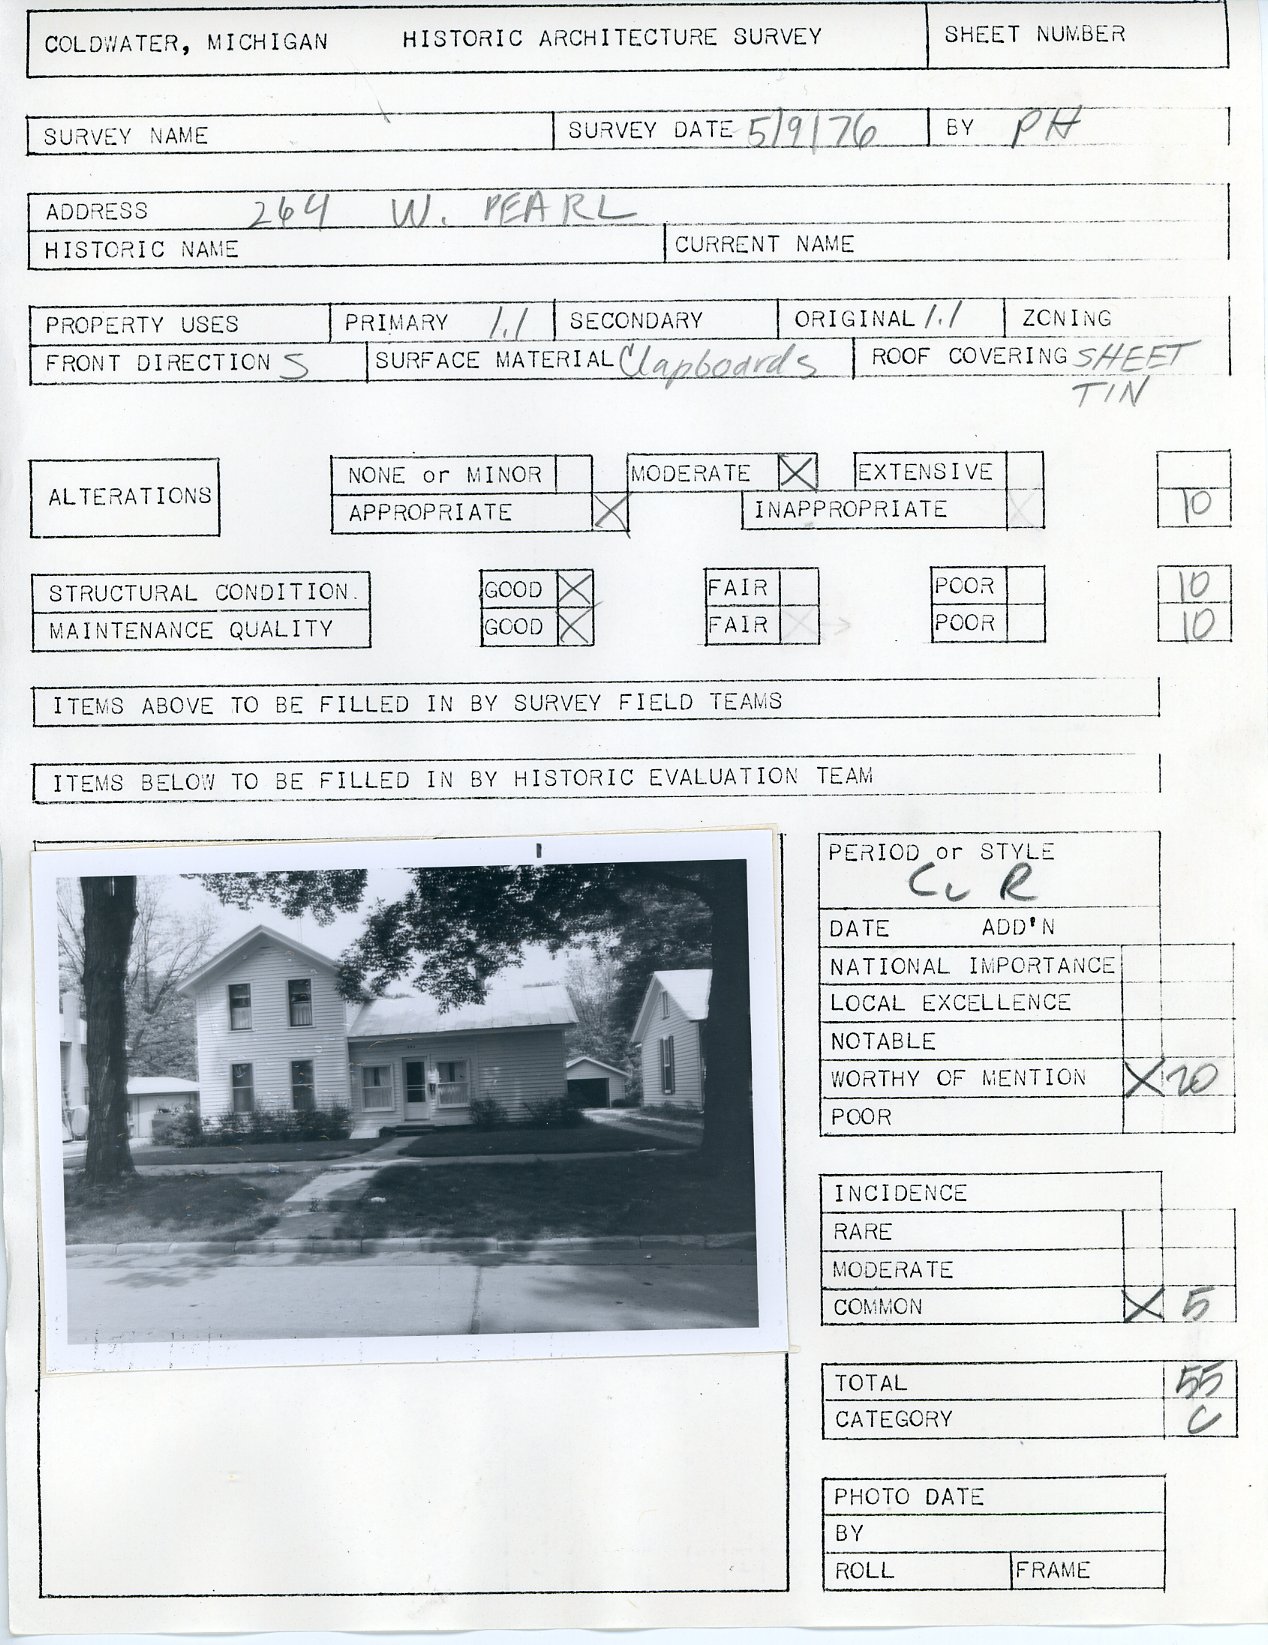 COLDWATER, MICHIGAN HISTORIC ARCHITECTURE SURVEY SHEET NUMBER
SURVEY NAME SURVEY DATE 5/9/76 BY PH
ADDRESS 264 W. PEARL
HISTORIC NAME CURRENT NAME
PROPERTY USES PRIMARY 1.1 SECONDARY ORIGINAL 1.1 ZONING
FRONT DIRECTION S SURFACE MATERIAL Clapboards ROOF COVERING SHEET
TIN
ALTERATIONS
NONE or MINOR MODERATE X EXTENSIVE
APPROPRIATE X INAPPROPRIATE X 10
STRUCTURAL CONDITION. GOOD X FAIR POOR 10
MAINTENANCE QUALITY GOOD X FAIR X POOR 10
ITEMS ABOVE TO BE FILLED IN BY SURVEY FIELD TEAMS
ITEMS BELOW TO BE FILLED IN BY HISTORIC EVALUATION TEAM
PERIOD or STYLE
R
DATE ADD'N
NATIONAL IMPORTANCE
LOCAL EXCELLENCE
NOTABLE
WORTHY OF MENTION X 20
POOR
INCIDENCE
RARE
MODERATE
COMMON X 5
TOTAL 55
CATEGORY C
PHOTO DATE
BY
ROLL FRAME